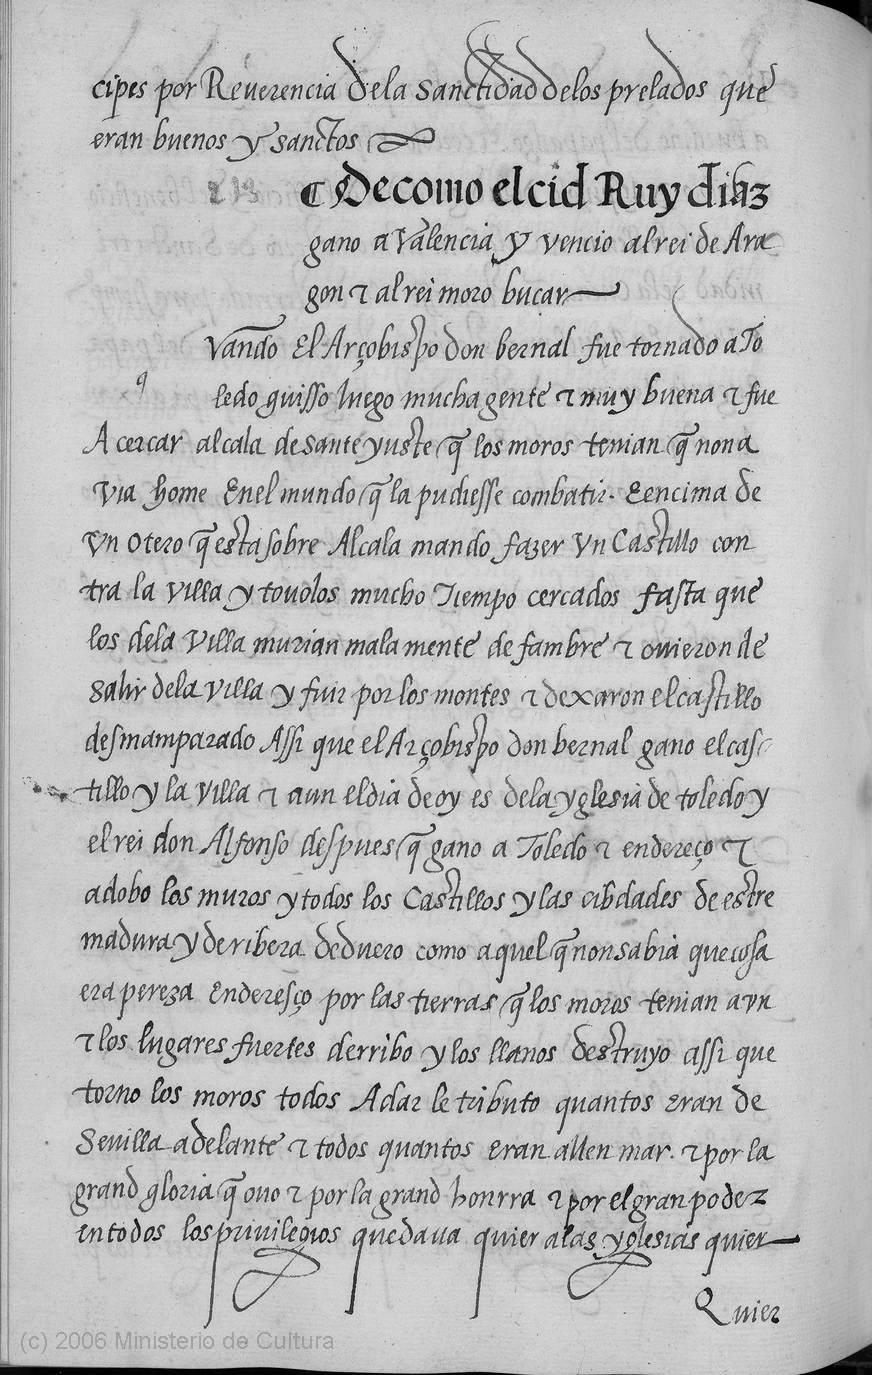 cipes por Reuerencia dela sanctidad delos prelados que
eran buenos y sanctos
¶ De como el cid Ruy diaz
gano a Valencia y vencio al rei de Ara
gon τ al rei moro bucar
Vando El Arçobispo don bernal fue tornado a To
q
ledo quisso luego mucha gente τ muy buena τ fue
A cercar alcala de santeyuste q̃ los moros tenian q̃ non a
via home Enel mundo q̃ la pudiesse combatir. E encima de
Vn otero q̃ esta sobre Alcala mando fazer Vn Castillo con
tra la villa y touolos mucho Tiempo cercados fasta que
los dela Villa murian mala mente de fambre τ ouieron de
Salir dela villa y fuir por los montes τ dexaron el castillo
desmamparado Assi que el Arçobispo don bernal gano el cas
tillo y la villa τ aun el dia de oy es dela yglesia de toledo y
el rei don Alfonso despues q̃ gano a Toledo τ endereço τ
adobo los muros y todos los Castillos y las cibdades de estre
madura y de ribera de duero como aquel q̃ non sabia que cosa
era pereza Enderesço por las tierras q̃ los moros tenian aun
τ los lugares fuertes derribo y los llanos destruyo assi que
torno los moros todos A dar le tributo quantos eran de
Seuilla adelante τ todos quantos eran allen mar. τ por la
grand gloria q̃ ouo τ por la grand honrra τ por el gran poder
en todos los priuilegios quedaua quier alas yglesias quier
Quier
(c) 2006 Ministerio de Cultura